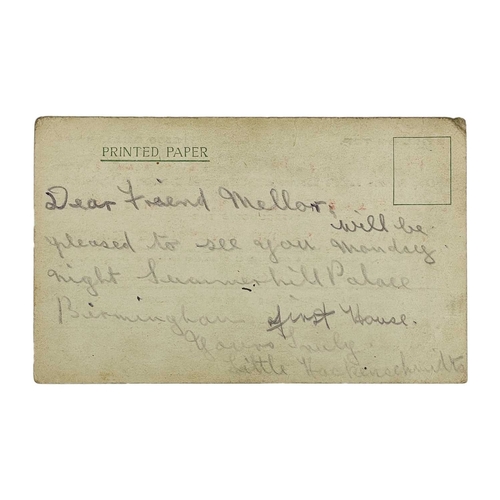 PRINTED PAPER
Dear Friend Mellor, will be
pleased to see you Monday
night Summerhill Palace
Birmingham first House.
Yours Truly
Little Hackenschmitts